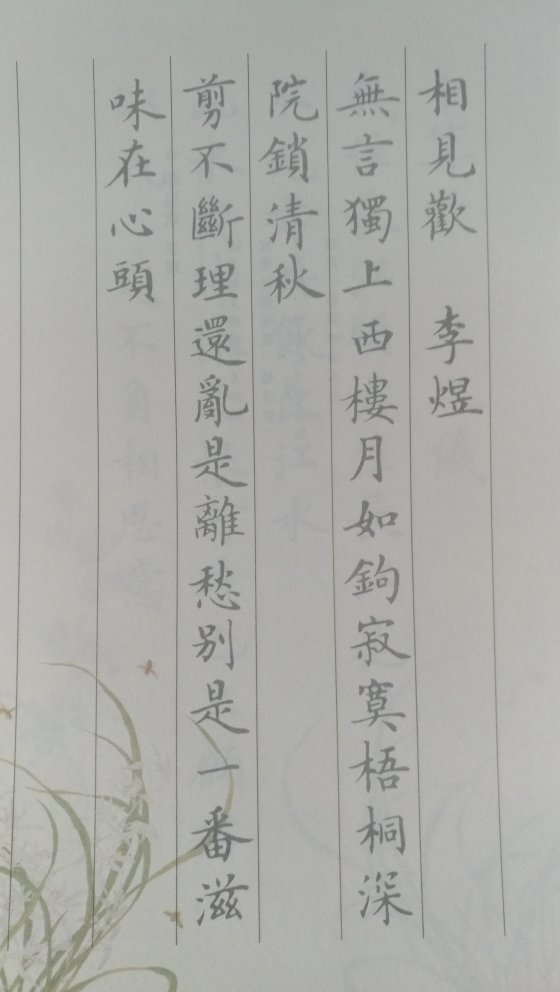 相見歡 李煜
無言獨上西樓月如鉤寂寞梧桐深
院鎖清秋
剪不斷理還亂是離愁別是一番滋
味在心頭